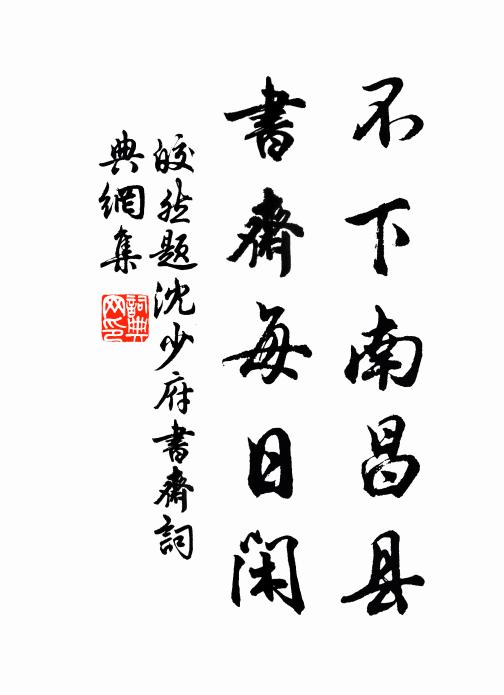 不下南昌县
書齋每日闲
皎然题沈少府書齋詞
典網集
詞典网印